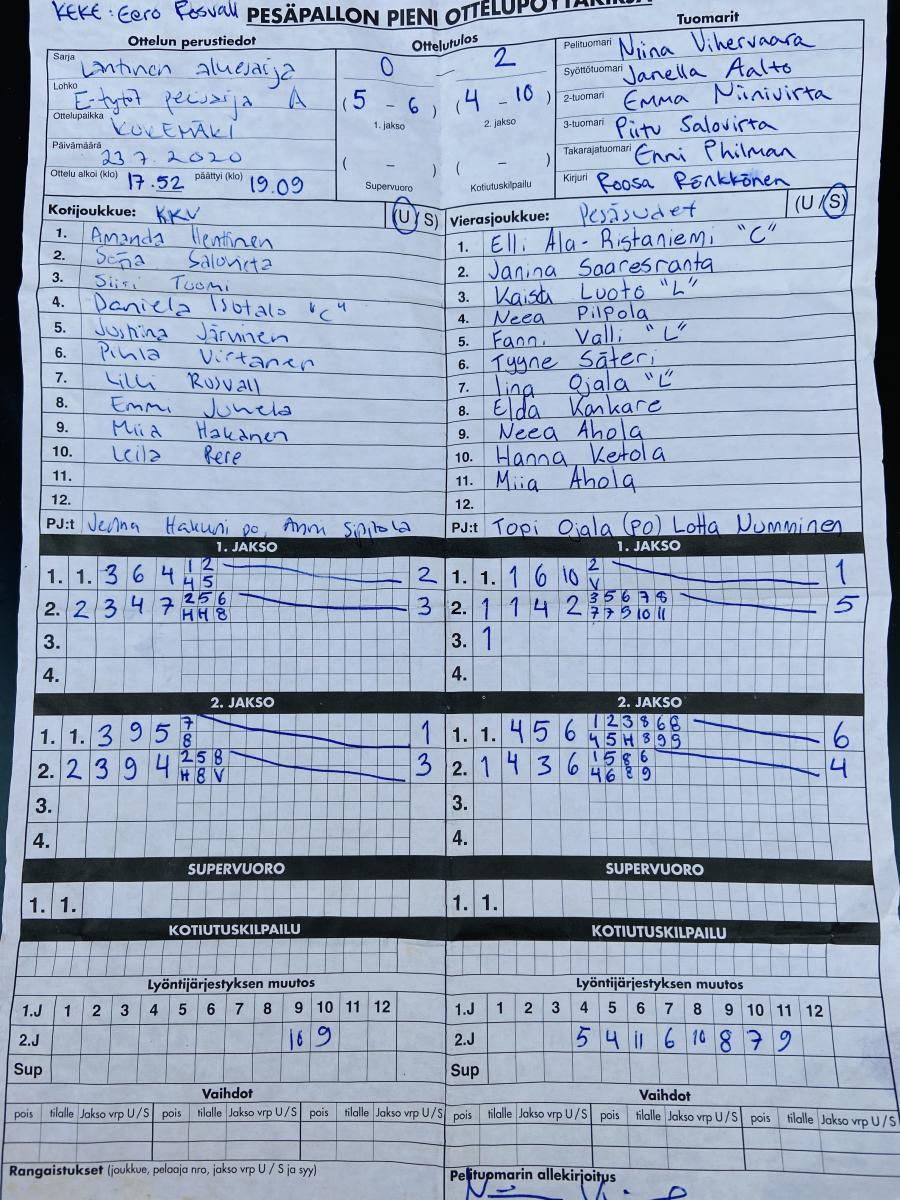 KEKE: Eero Rosvall
PESÄPALLON PIENI OTTELUPÖYTÄKIRJA
Ottelun perustiedot
Sarja Läntinen aluesarja
Lohko E-tytöt perussarja A
Ottelupaikka KOKEMÄKI
Päivämäärä 23 7. 2020
Ottelu alkoi (klo) 17.52 päättyi (klo) 19.09
Ottelutulos
0 – 2
(5 – 6) (4 – 10)
1. jakso 2. jakso
( – ) ( – )
Supervuoro Kotiutuskilpailu
Tuomarit
Pelituomari Niina Vihervaara
Syöttötuomari Janella Aalto
2-tuomari Emma Niinivirta
3-tuomari Piitu Salovirta
Takarajatuomari Enni Philman
Kirjuri Roosa Rönkkönen
Kotijoukkue: KKV (U / S)
1. Amanda Henttinen
2. Salovirta
3. Siiri Tuomi
4. Daniela Isotalo "C"
5. Justiina Järvinen
6. Pihla Virtanen
7. Lilli Rosvall
8. Emmi Juhela
9. Miia Hakanen
10. Leila Pere
11.
12.
PJ:t Jenna Hakuni po, Anni
Vierasjoukkue: Pesäsudet (U / S)
1. Elli Ala-Ristaniemi "C"
2. Janina Saaresranta
3. Kaisu Luoto "L"
4. Neea Pilpola
5. Fanni Valli "L"
6. Tyyne Säteri
7. Iina Ojala "L"
8. Elda Kankare
9. Neea Ahola
10. Hanna Ketola
11. Miia Ahola
12.
PJ:t Topi Ojala (po) Lotta Numminen
1. JAKSO
1. 1. 3 6 4 1 2 2
4 5
2. 2 3 4 7 2 5 6 3
H H 8
3.
4.
1. JAKSO
1. 1. 1 6 10 2 1
V
2. 1 1 4 2 3 5 6 7 8 5
7 7 9 10 11
3. 1
4.
2. JAKSO
1. 1. 3 9 5 7 1
8
2. 2 3 9 4 2 5 8 3
H 8 V
3.
4.
2. JAKSO
1. 1. 4 5 6 1 2 3 8 6 8 6
4 5 H 8 9 9
2. 1 4 3 6 1 5 8 6 4
4 6 8 9
3.
4.
SUPERVUORO
1. 1.
SUPERVUORO
1. 1.
KOTIUTUSKILPAILU
KOTIUTUSKILPAILU
Lyöntijärjestyksen muutos
1.J 1 2 3 4 5 6 7 8 9 10 11 12
2.J 10 9
Sup
Lyöntijärjestyksen muutos
1.J 1 2 3 4 5 6 7 8 9 10 11 12
2.J 5 4 11 6 10 8 7 9
Sup
Vaihdot
pois tilalle Jakso vrp U / S pois tilalle Jakso vrp U / S pois tilalle Jakso vrp U / S
Vaihdot
pois tilalle Jakso vrp U / S pois tilalle Jakso vrp U / S pois tilalle Jakso vrp U / S
Rangaistukset (joukkue, pelaaja nro, jakso vrp U / S ja syy)
Pelituomarin allekirjoitus